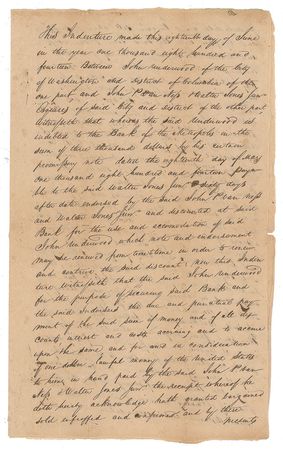 This Indenture made this eighteenth day of June
in the year one thousand eight hundred and
fourteen Between John Underwood of the City
of Washington and district of Columbia of the
one part and John P Van Ness & Walter Jones Junr
of said City and district of the other part
Witnesseth that whereas the said Underwood is
indebted to the Bank of the Metropolis in the
sum of three thousand dollars by his certain
promissory note dated the eighteenth day of May
one thousand eight hundred and fourteen paya
ble to the said Walter Jones Junr Sixty days
after date endorsed by the said John P Van Ness
and Walter Jones Junr and discounted at said
Bank for the use and accomodation of said
John Underwood which note and endorsement
may be renewed from time to time in order to renew
and continue the said discount, now this Inden
ture witnesseth that the said John Underwood
for the purpose of securing said Bank and
the said Indorsers the due and punctual pay
ment of the said sum of money and of all dis
counts interest and costs accruing and to accrue
upon the same and for and in consideration
of one dollar lawful money of the United States
to him in hand paid by the said John P Van
Ness & Walter Jones Junr the receipt whereof he
doth hereby acknowledge hath granted bargained
sold enfeoffed and confirmed and by these
presents